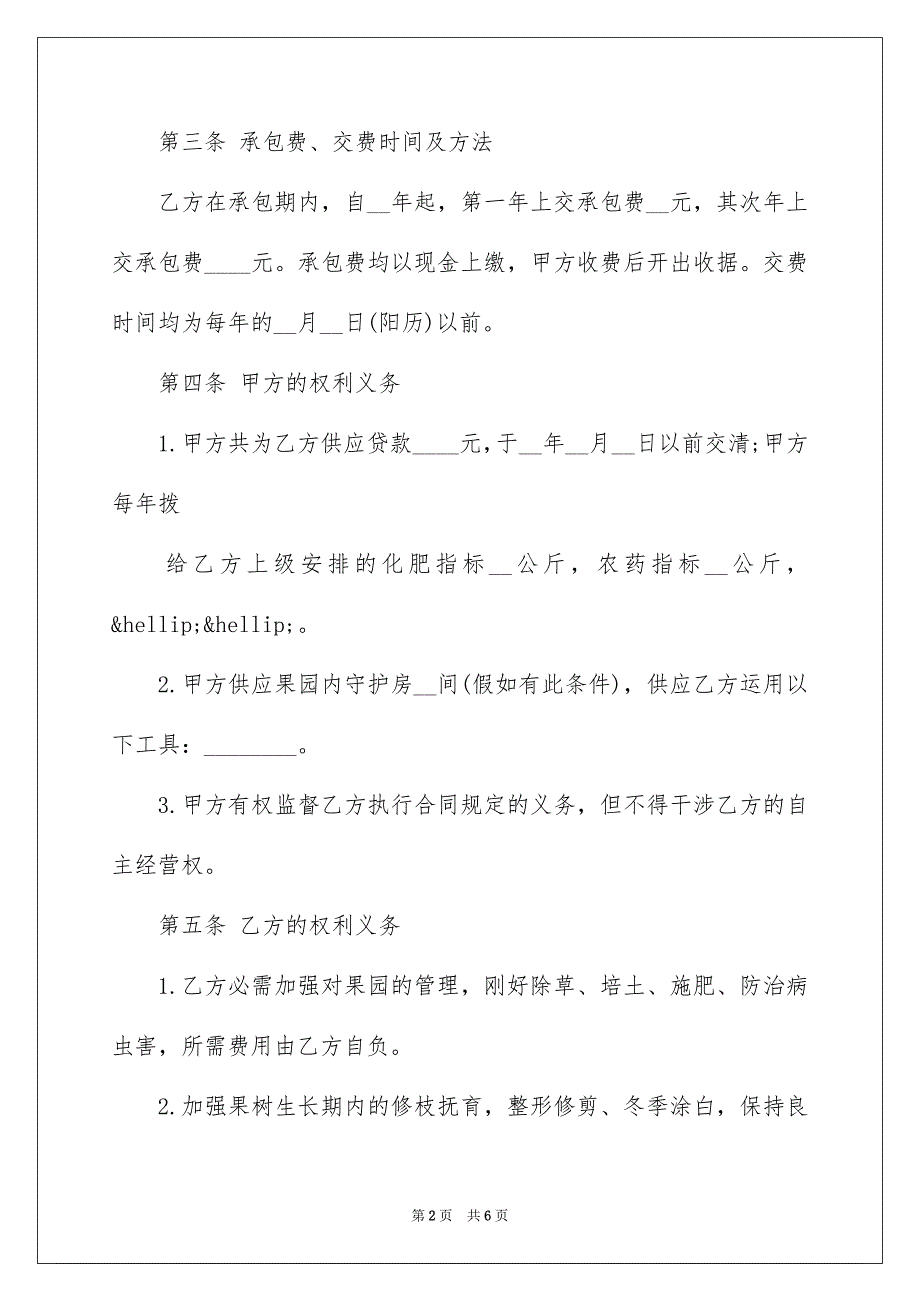 第三条 承包费、交费时间及方法
乙方在承包期内，自__年起，第一年上交承包费__元，其次年上
交承包费____元。承包费均以现金上缴，甲方收费后开出收据。交费
时间均为每年的__月__日(阳历)以前。
第四条 甲方的权利义务
1.甲方共为乙方供应贷款____元,于__年__月__日以前交清;甲方
每年拨
给乙方上级安排的化肥指标__公斤，农药指标__公斤，
&hellip;&hellip;。
2.甲方供应果园内守护房__间(假如有此条件)，供应乙方运用以
下工具：________。
3.甲方有权监督乙方执行合同规定的义务，但不得干涉乙方的自
主经营权。
第五条 乙方的权利义务
1.乙方必需加强对果园的管理，刚好除草、培土、施肥、防治病
虫害，所需费用由乙方自负。
2.加强果树生长期内的修枝抚育，整形修剪、冬季涂白，保持良
第 2 页 共 6 页